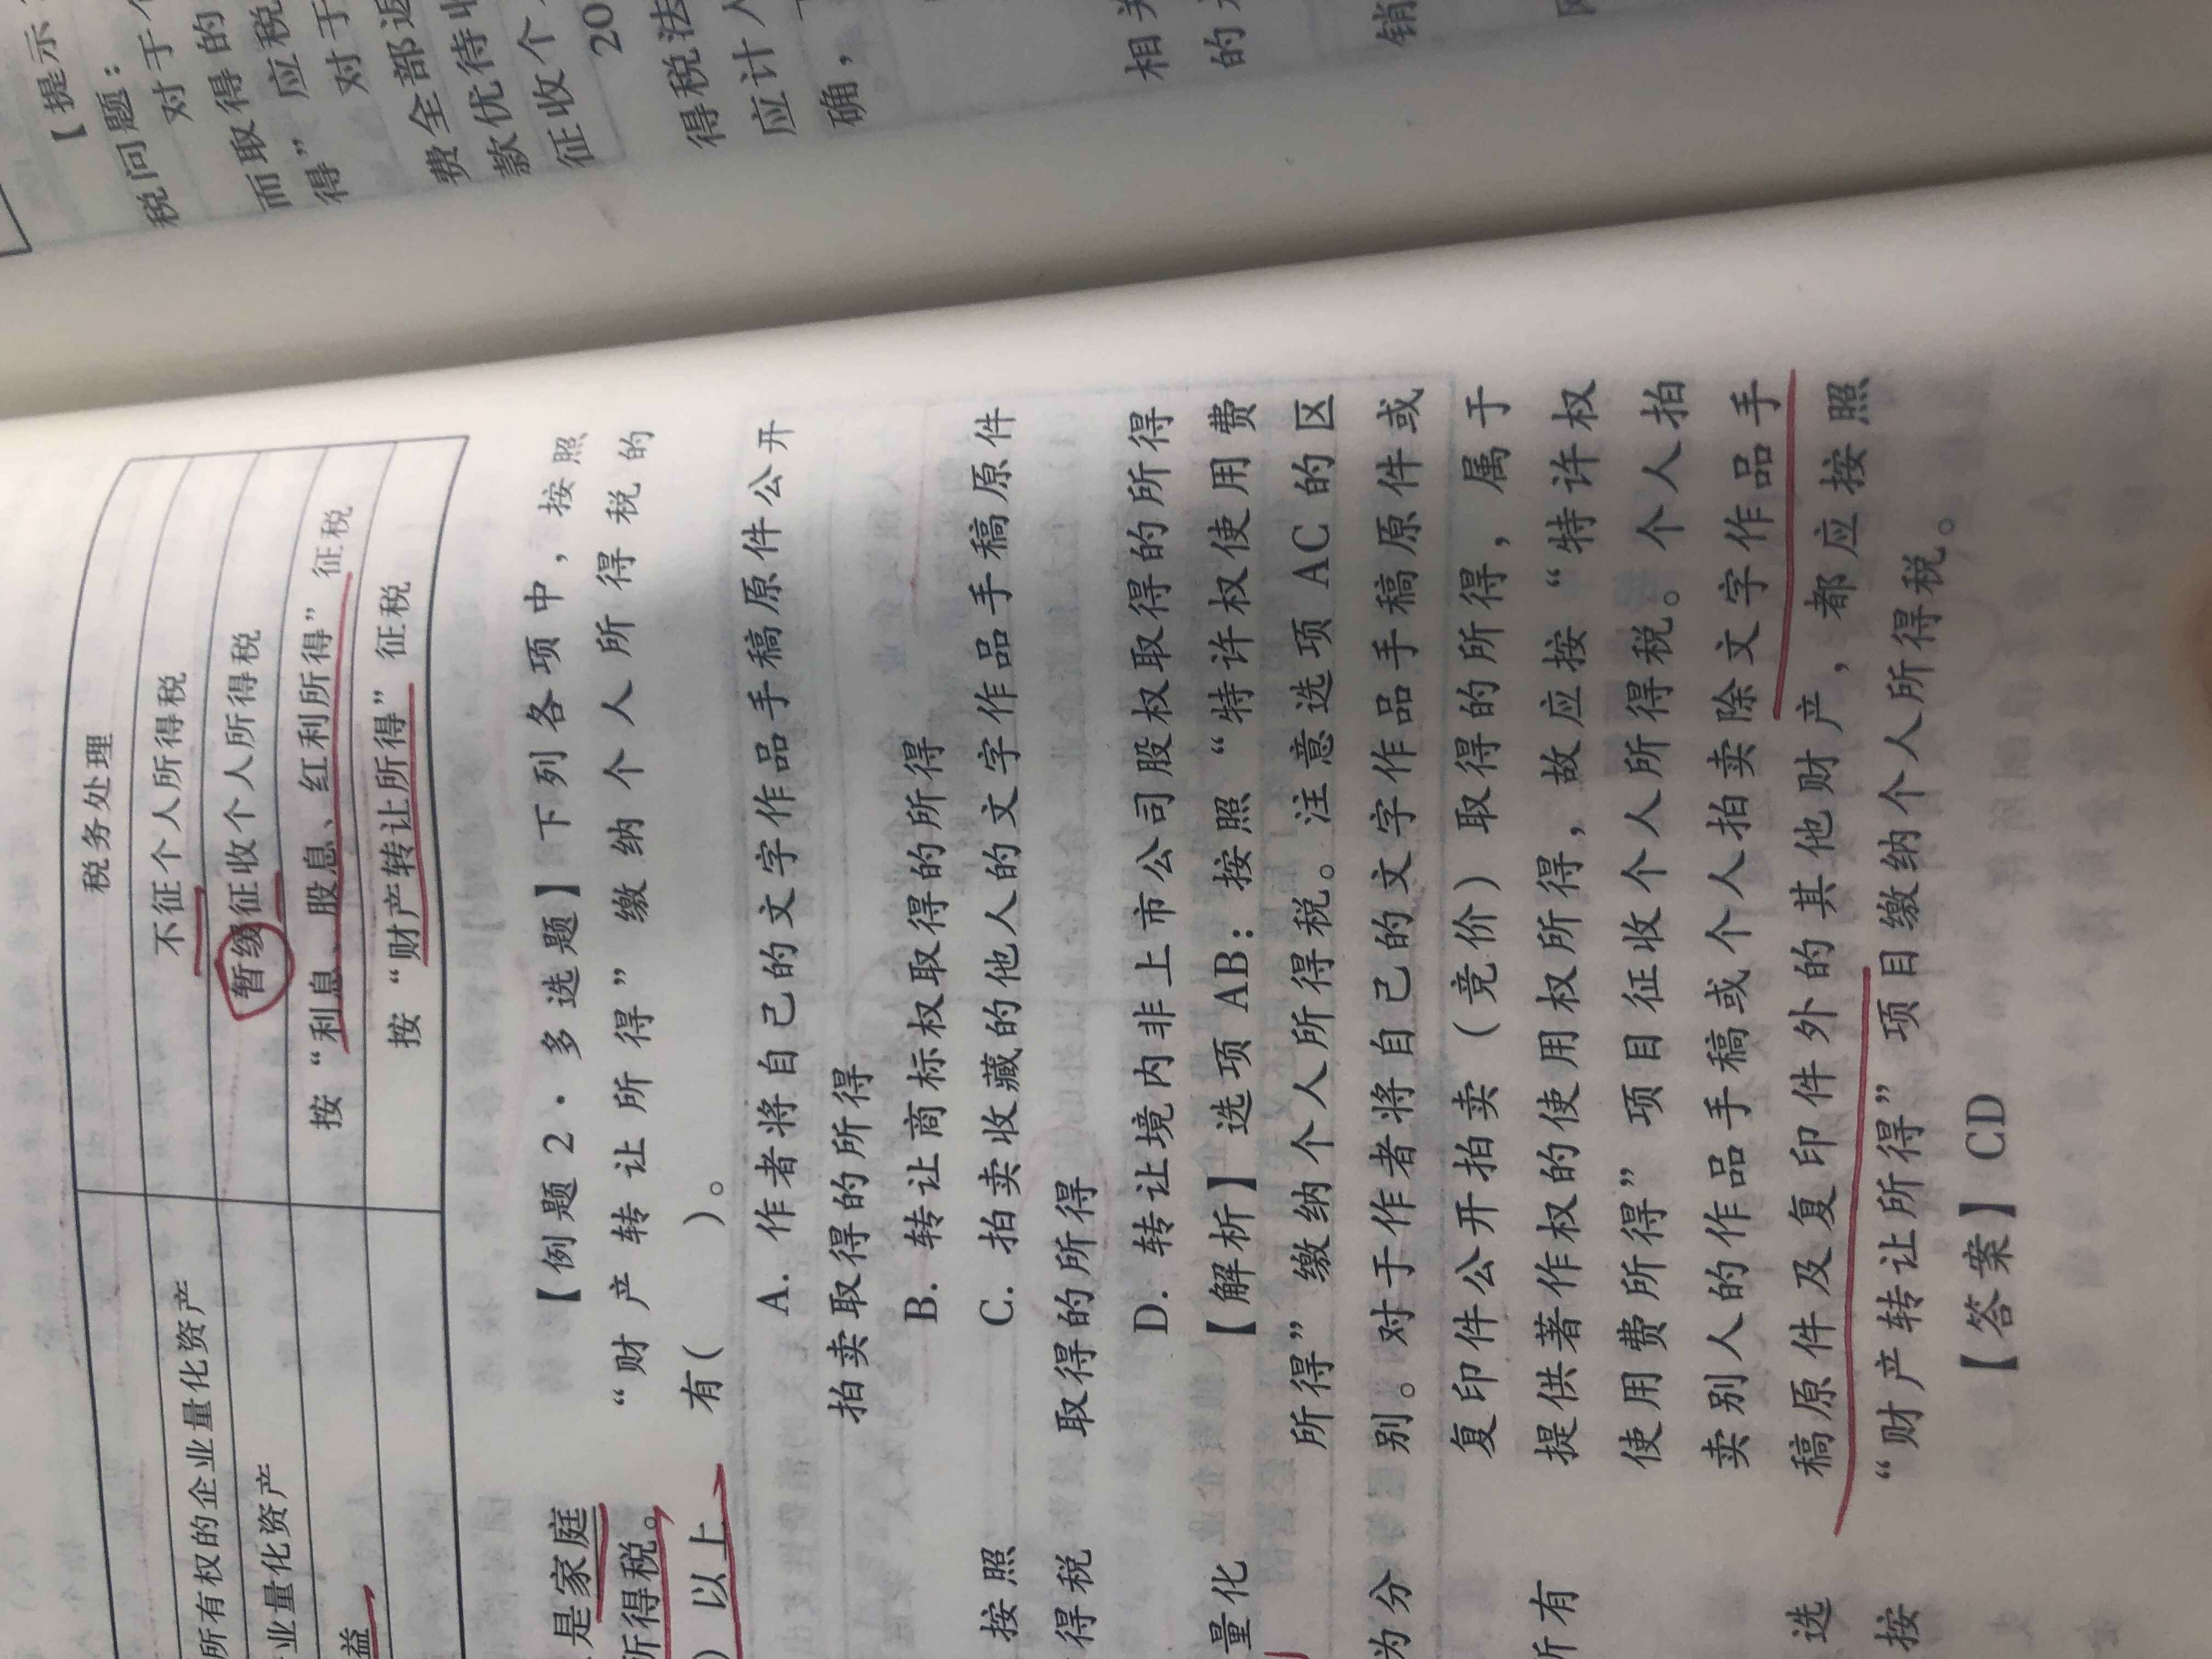 税务处理
不征个人所得税
所有权的企业量化资产
暂缓征收个人所得税
业量化资产
按“利息、股息、红利所得”征税
益
按“财产转让所得”征税
是家庭
所得税。
以上
按照
得税
量化
为分
所有
选
按
【例题2·多选题】下列各项中，按照
“财产转让所得”缴纳个人所得税的
有(　　)。
A. 作者将自己的文字作品手稿原件公开
拍卖取得的所得
B. 转让商标权取得的所得
C. 拍卖收藏的他人的文字作品手稿原件
取得的所得
D. 转让境内非上市公司股权取得的所得
【解析】选项AB：按照“特许权使用费
所得”缴纳个人所得税。注意选项AC的区
别。对于作者将自己的文字作品手稿原件或
复印件公开拍卖（竞价）取得的所得，属于
提供著作权的使用权所得，故应按“特许权
使用费所得”项目征收个人所得税。个人拍
卖别人的作品手稿或个人拍卖除文字作品手
稿原件及复印件外的其他财产，都应按照
“财产转让所得”项目缴纳个人所得税。
【答案】CD
【提示
税问题：
对于
而取得的
得”应税
对于
费全部返
款优待
征收个
20
得税法
应计
确，
相关
的
销